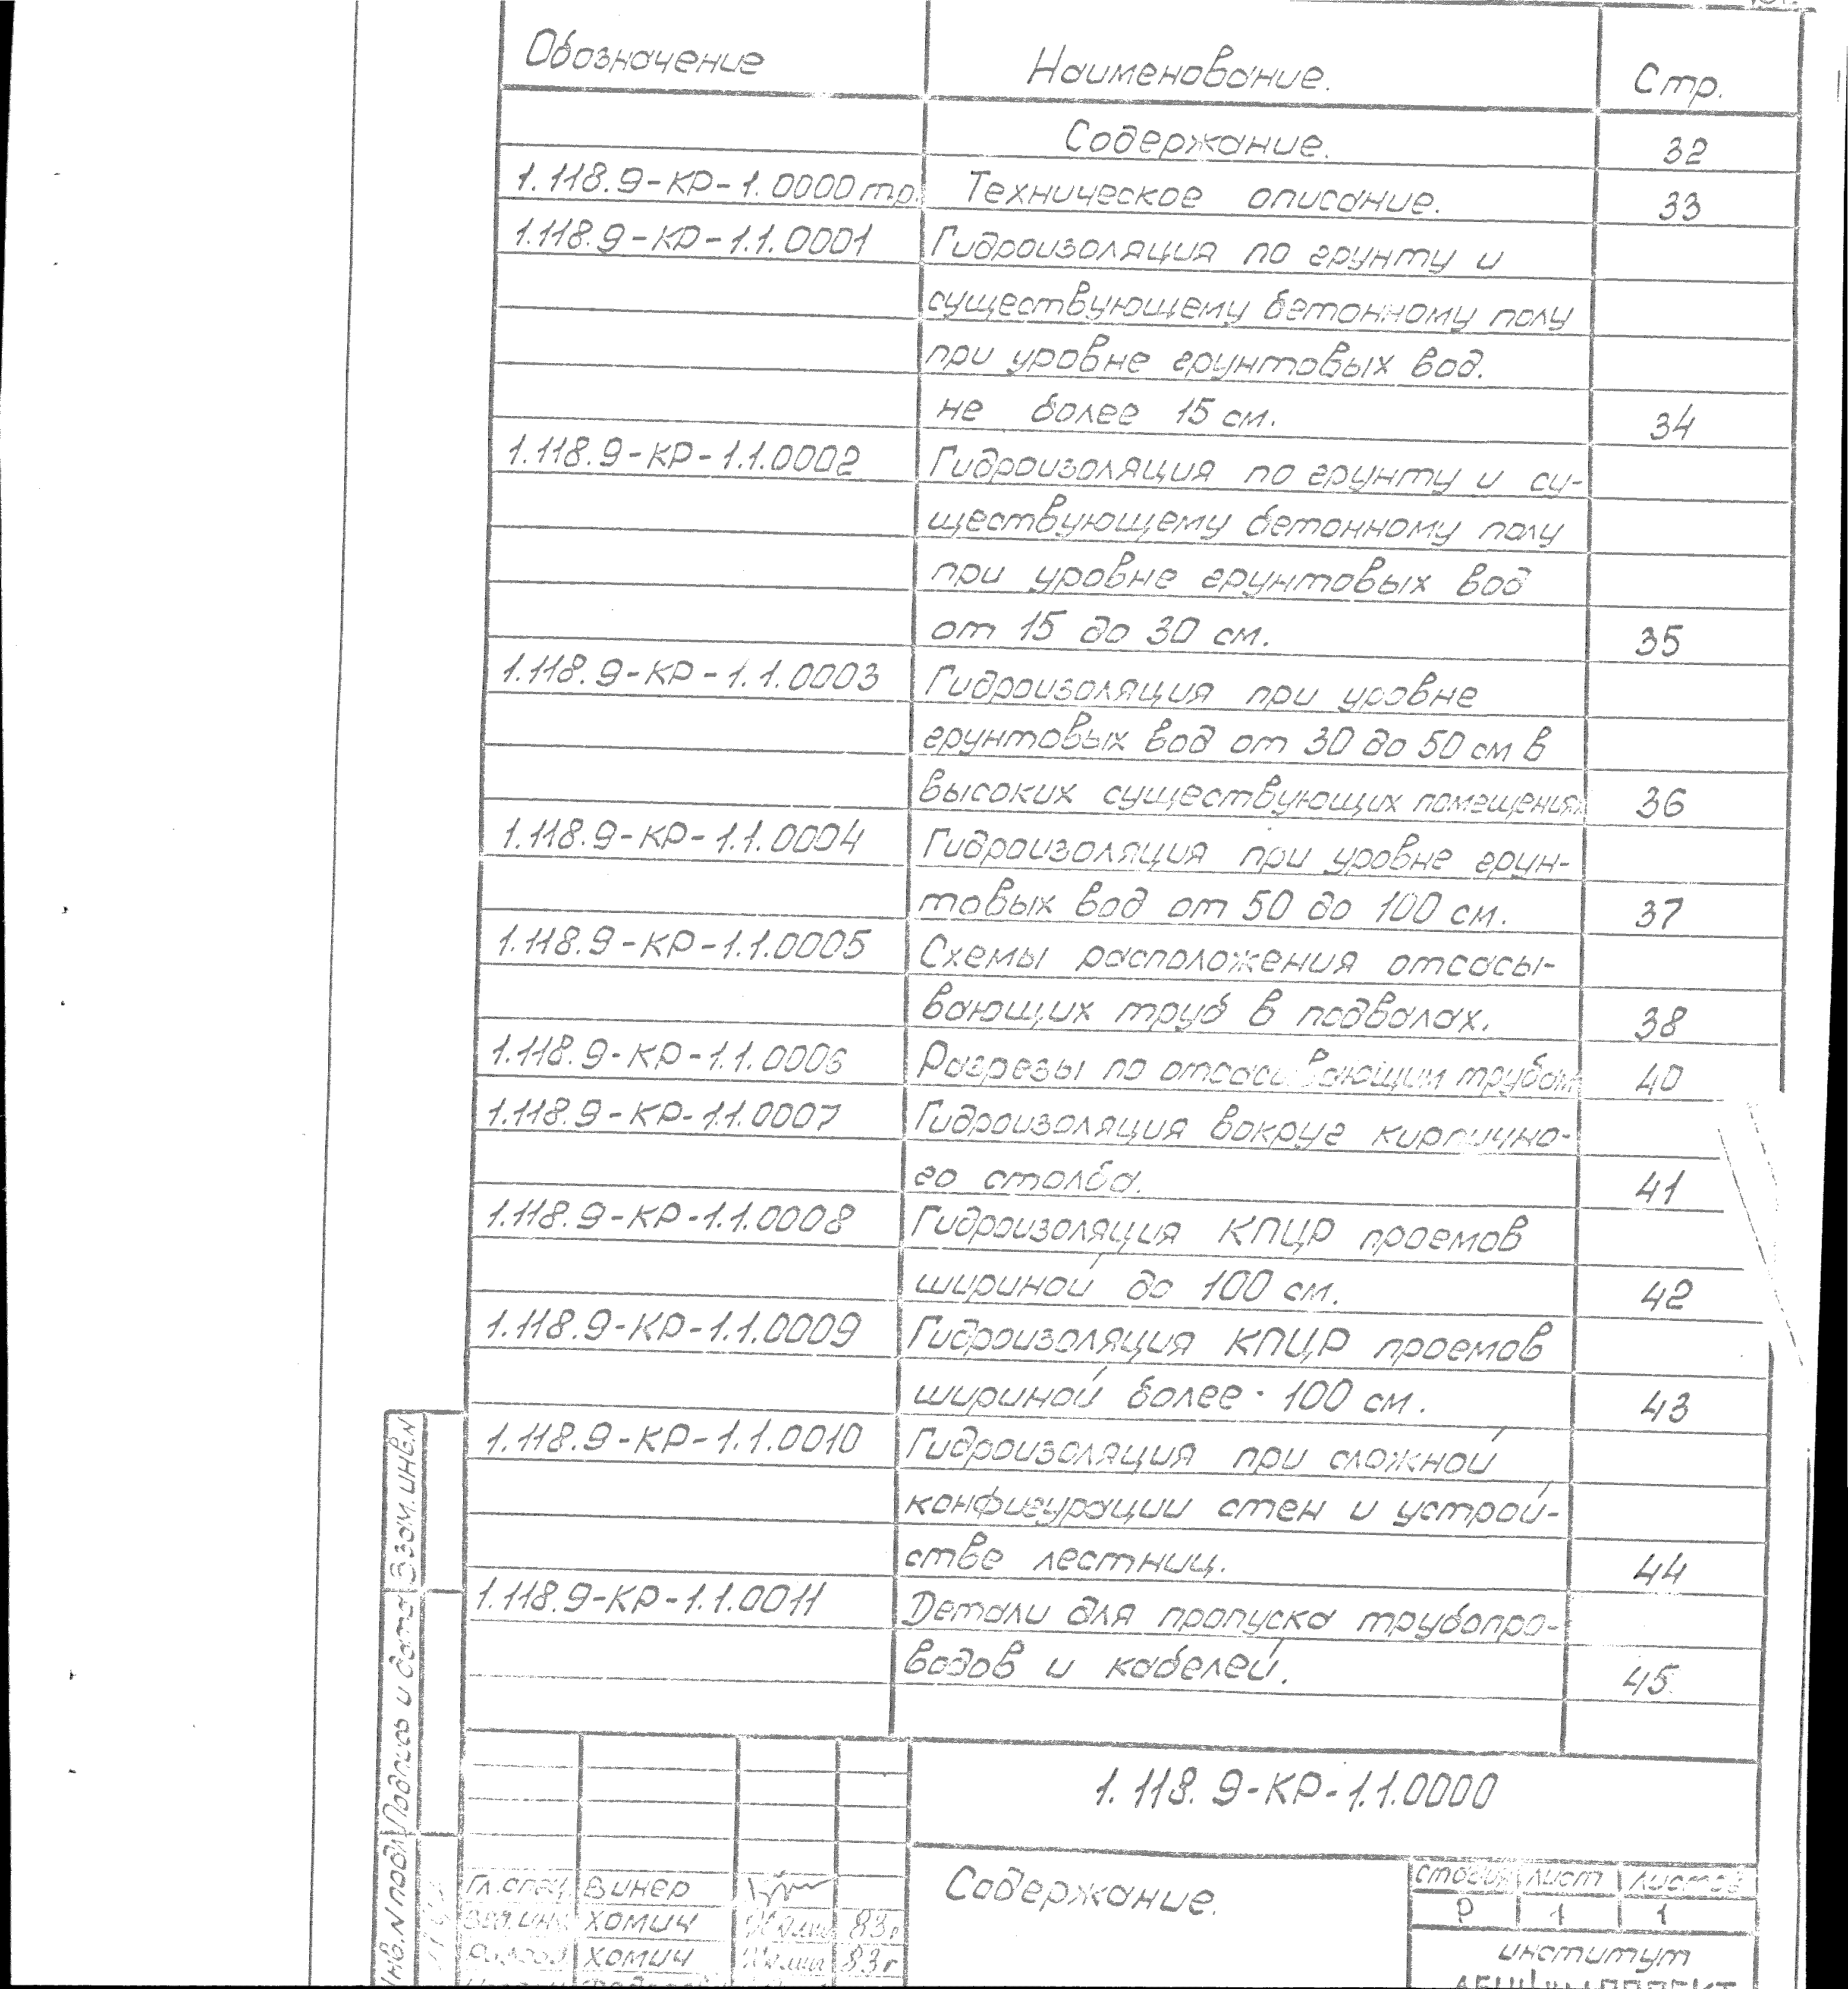 Обозначение Наименование. Стр.
Содержание. 32
1.118.9-КР-1.0000 т.р. Техническое описание. 33
1.118.9-КР-1.1.0001 Гидроизоляция по грунту и
существующему бетонному полу
при уровне грунтовых вод.
не более 15 см. 34
1.118.9-КР-1.1.0002 Гидроизоляция по грунту и су-
ществующему бетонному полу
при уровне грунтовых вод
от 15 до 30 см. 35
1.118.9-КР-1.1.0003 Гидроизоляция при уровне
грунтовых вод от 30 до 50 см в
высоких существующих помещениях 36
1.118.9-КР-1.1.0004 Гидроизоляция при уровне грун-
товых вод от 50 до 100 см. 37
1.118.9-КР-1.1.0005 Схемы расположения отсасы-
вающих труб в подвалах. 38
1.118.9-КР-1.1.0006 Разрезы по отсасывающим трубам 40
1.118.9-КР-1.1.0007 Гидроизоляция вокруг кирпично-
го столба. 41
1.118.9-КР-1.1.0008 Гидроизоляция КПЦР проемов
шириной до 100 см. 42
1.118.9-КР-1.1.0009 Гидроизоляция КПЦР проемов
шириной более 100 см. 43
1.118.9-КР-1.1.0010 Гидроизоляция при сложной
конфигурации стен и устрой-
стве лестниц. 44
1.118.9-КР-1.1.0011 Детали для пропуска трубопро-
водов и кабелей. 45
Взам.инв.N
Подпись и дата
Инв.N подл
1.118.9-КР-1.1.0000
Содержание.
Гл.спец. Винер
Хомич 83г
Хомич 83г
стадия лист листов
Р 1 1
институт